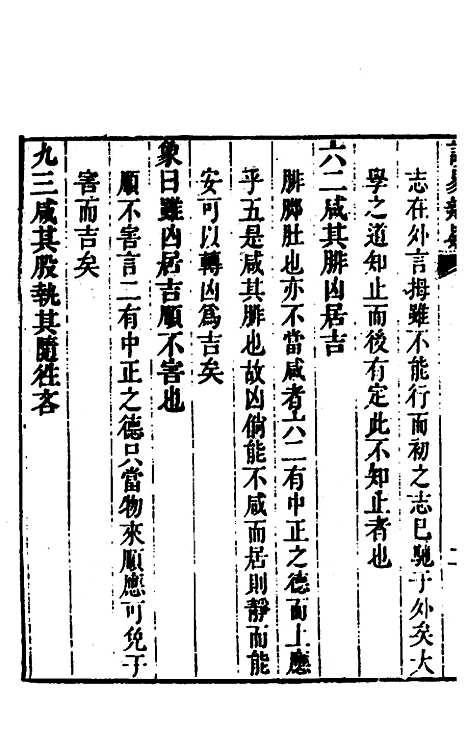 志在外言拇雖不能行而初之志已馳于外矣大
學之道知止而後有定此不知止者也
六二咸其腓凶居吉
腓腳肚也亦不當咸者六二有中正之德而上應
乎五是咸其腓也故凶倘能不咸而居則靜而能
安可以轉凶爲吉矣
象曰雖凶居吉順不害也
順不害言二有中正之德只當物來順應可免于
害而吉矣
九三咸其股執其隨往吝